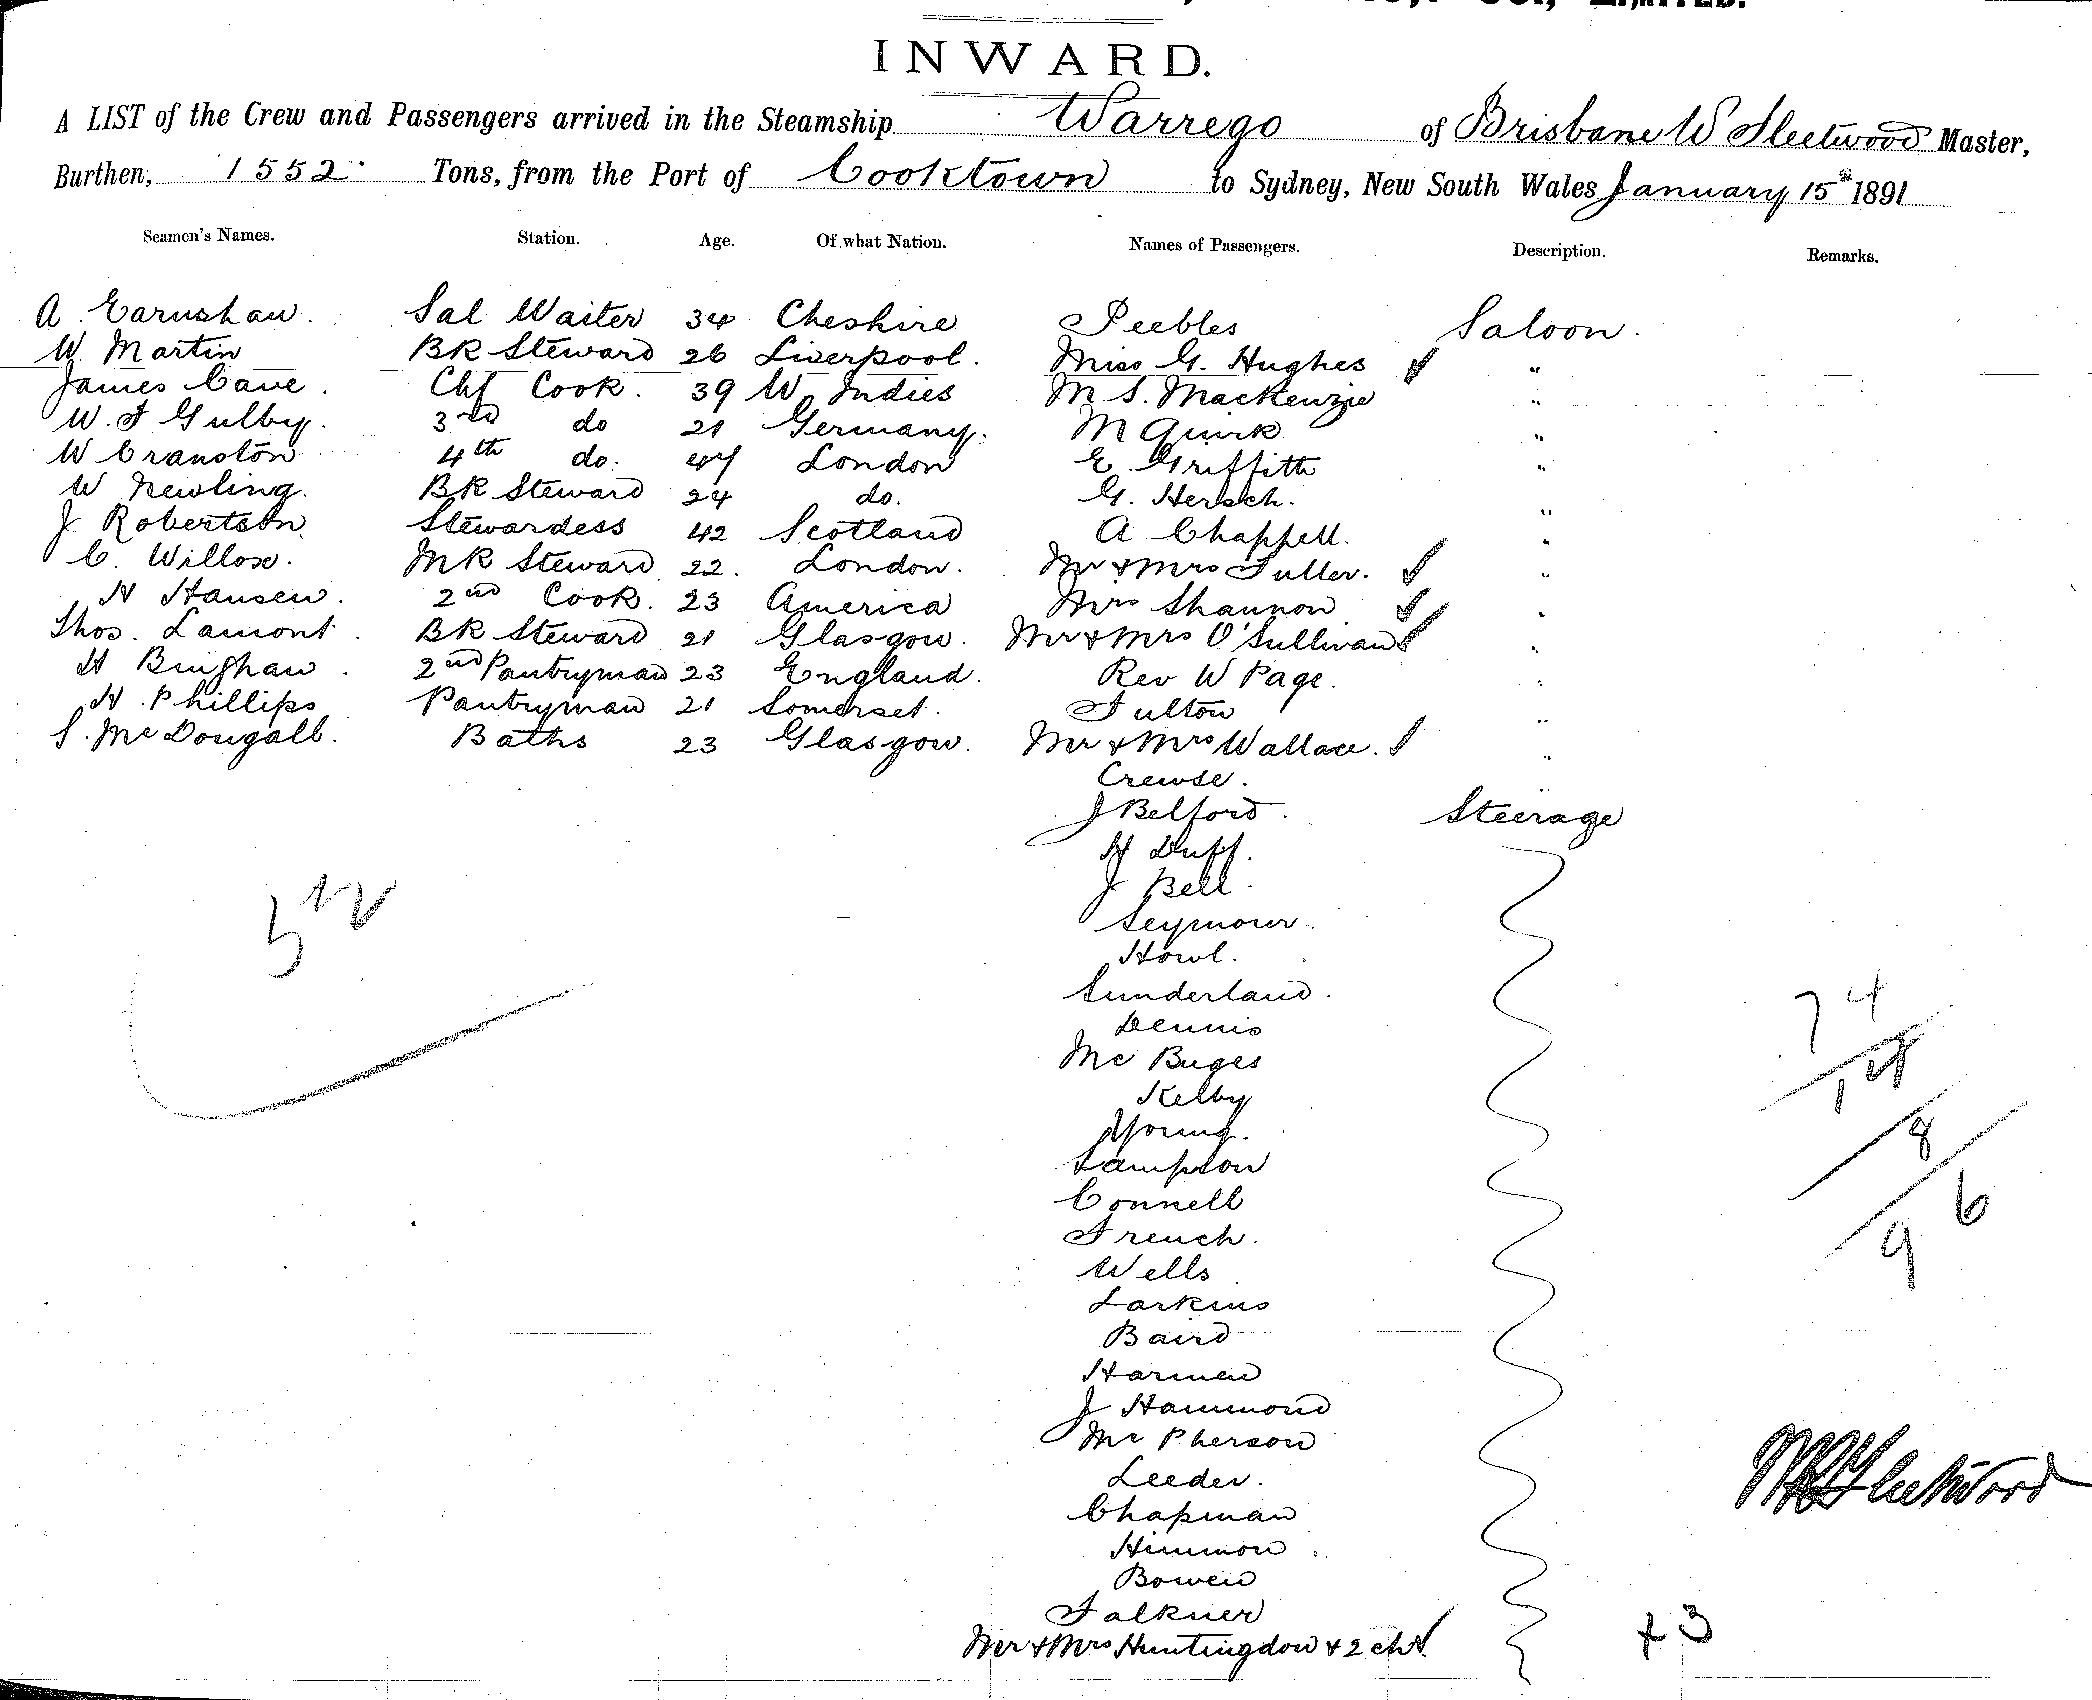 LIMITED.
INWARD.
A LIST of the Crew and Passengers arrived in the Steamship Warrego of Brisbane W Fleetwood Master,
Burthen, 1552 Tons, from the Port of Cooktown to Sydney, New South Wales January 15th 1891
Seamen's Names. Station. Age. Of what Nation. Names of Passengers. Description. Remarks.
A Earnshaw. Sal Waiter 34 Cheshire Peebles Saloon.
W. Martin BR Steward 26 Liverpool. Miss G. Hughes "
James Cave. Chf Cook. 39 W. Indies M S. MacKenzie "
W. F Gulby. 3rd do 21 Germany. M Quirk "
W Cranston 4th do. 47 London E Griffith "
W Newling. BR Steward 24 do. G. Hersch. "
J Robertson. Stewardess 42 Scotland A Chappell. "
C. Willox. MR Steward 22. London. Mr & Mrs Fuller. "
H Hansen. 2nd Cook. 23 America Mrs Shannon "
Thos. Lamont. BR Steward 21 Glasgow. Mr & Mrs O'Sullivan "
H Bingham. 2nd Pantryman 23 England. Rev W Page. "
H Phillips Pantryman 21 Somerset. Fulton "
S. McDougall. Baths 23 Glasgow. Mr & Mrs Wallace. "
Crewse. "
J Belford. Steerage
H Duff.
J Bell.
Seymour.
Howl.
Sunderland.
Dennis
Mc Buges
Kelby
Young.
Sampson
Connell
French.
Wells
Larkins
Baird
Harmen
J Hammond
McPherson
Leeder.
Chapman
Himmon
Bowen
Falkner
Mr & Mrs Huntingdon & 2 chn
52
74
14
8
96
+3
Fleetwood